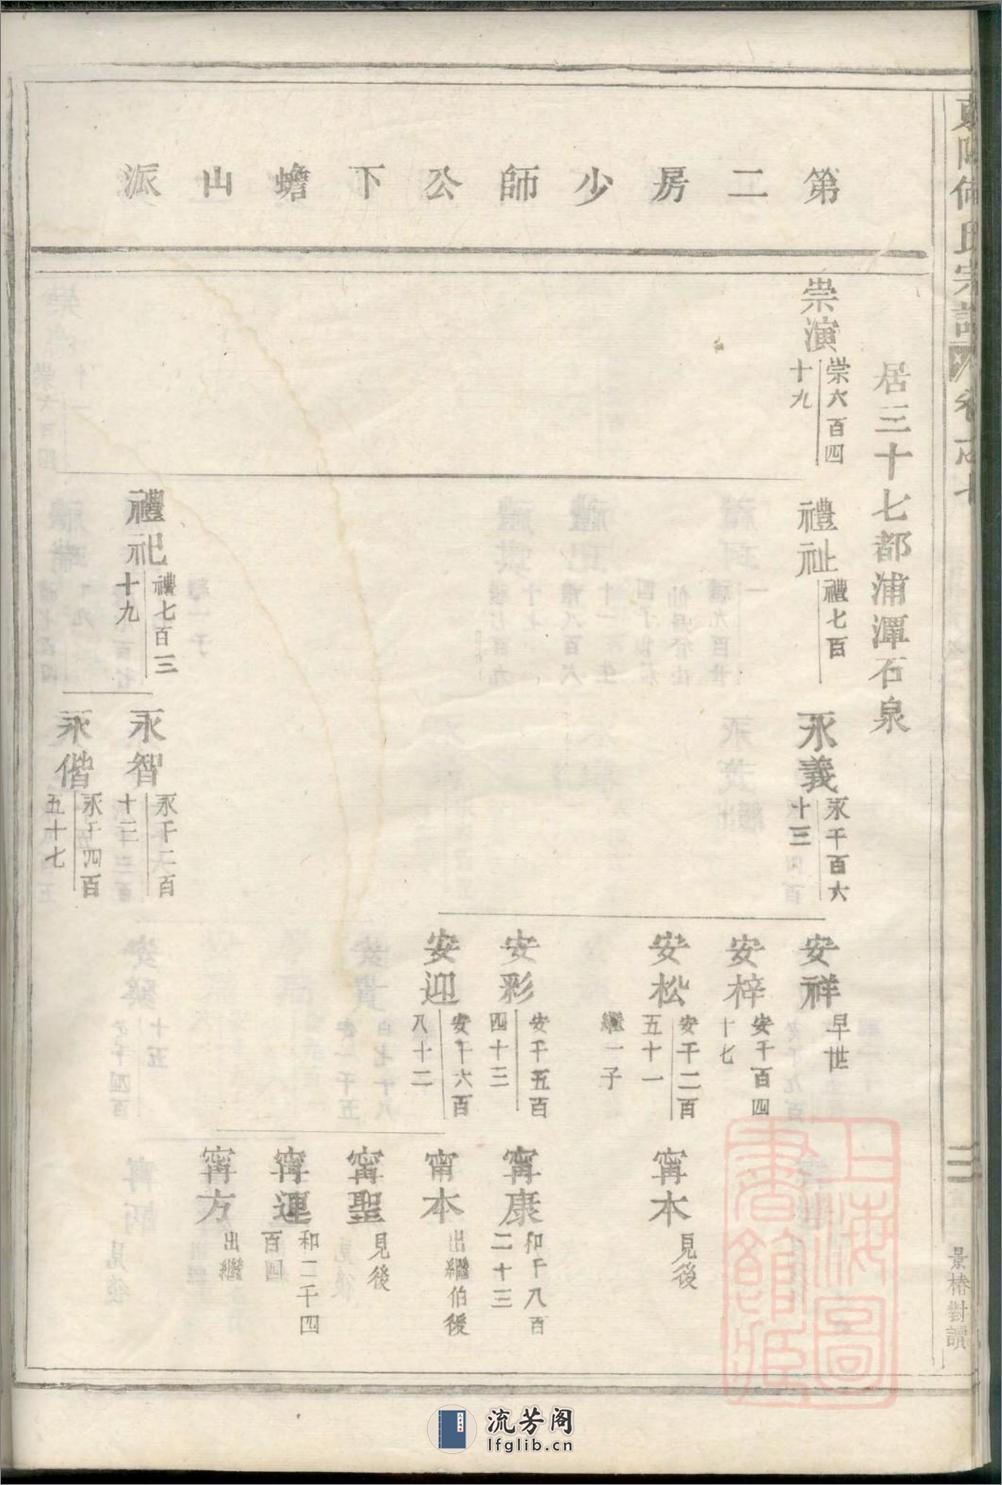 第二房少師公下蟾山派
居三十七都浦潭石泉
崇演
崇六百四
十九
禮祉
禮七百
禮祀
禮七百三
十九
永義
永千百六
十三
永智
永千二百
十三
永偕
永千四百
五十七
安祥
早世
安梓
安千百四
十七
安松
安千二百
五十一
繼一子
安彩
安千五百
四十三
安迎
安千六百
八十二
甯本
見後
甯康
和千八百
二十三
甯本
出繼伯後
甯聖
見後
甯運
和二千四
百四
甯方
出繼
氏宗
三
景椿對讀
上海圖書館藏
流芳阁
lfglib.cn